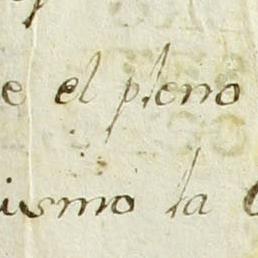 e el pleno
ismo la